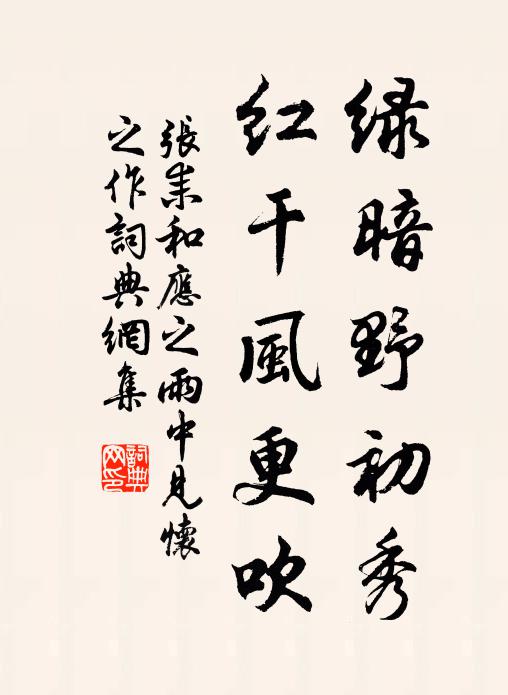 緑暗野初秀
紅干風更吹
張耒和應之雨中見懷
之作詞典網集
詞典網印